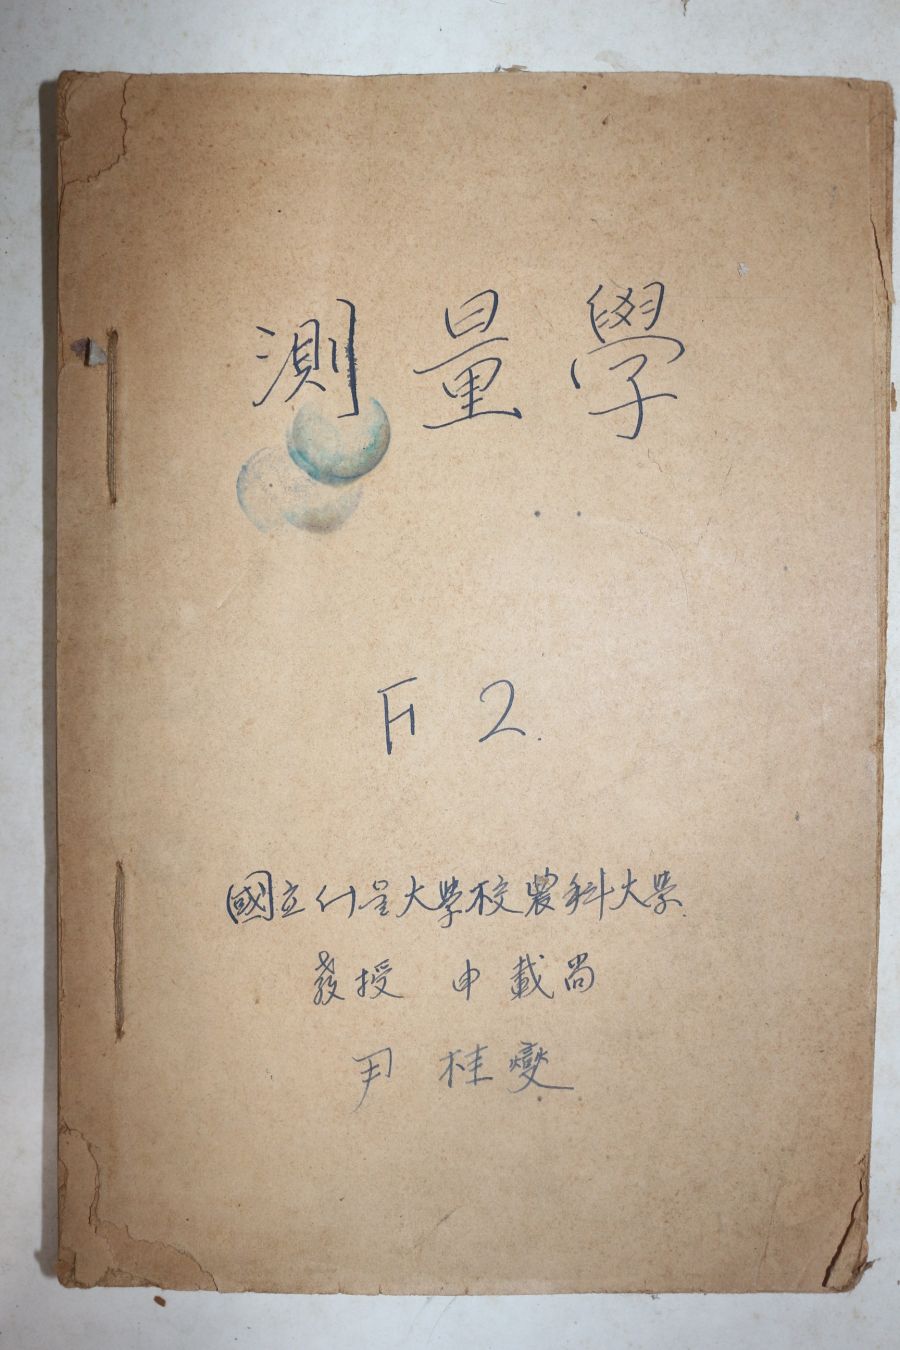 測量學
2.
國立서울大學校農科大學.
敎授 申載尚
尹桂燮